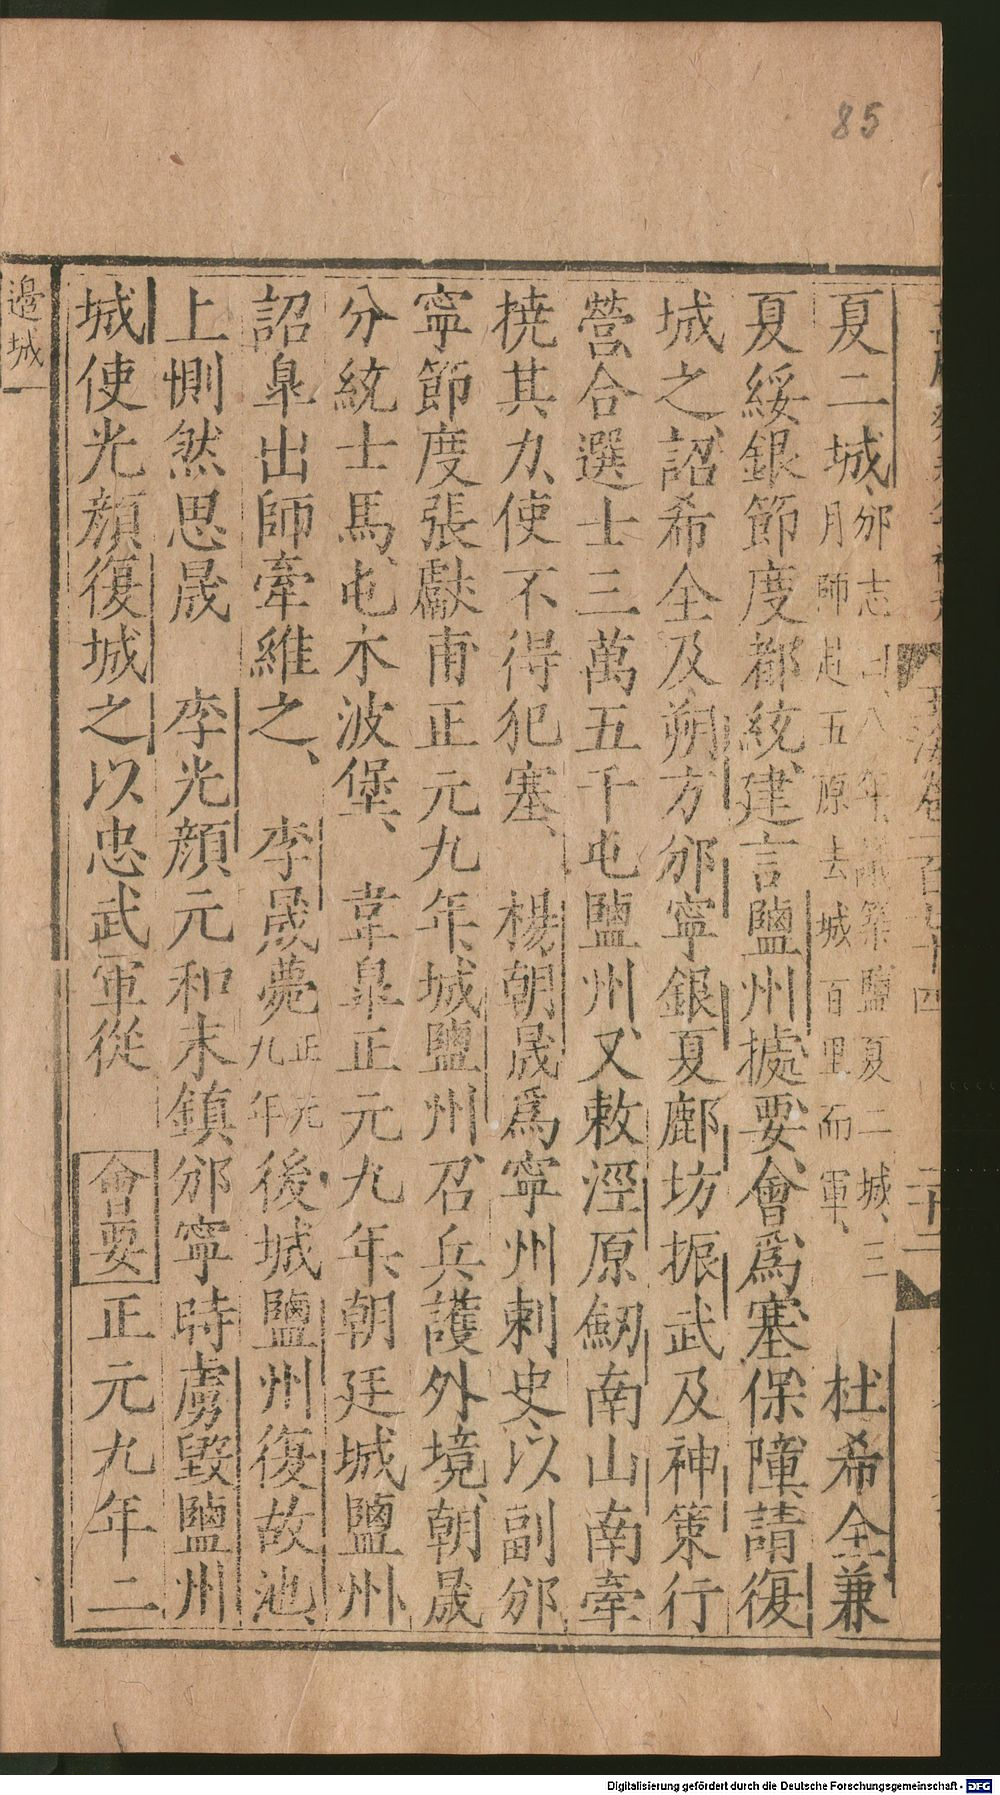 85
夏二城、邠志曰、八年、議築鹽夏二城、三月師赴五原去城百里而軍、 杜希全兼
夏綏銀節度都統、建言鹽州據要、會爲塞保障、請復
城之、詔希全及朔方邠寧銀夏鄜坊振武及神策行
營合選士三萬五千屯鹽州、又敕涇原劒南山南牽
撓其力、使不得犯塞、 楊朝晟爲寧州刺史、以副邠
寧節度張獻甫正元九年、城鹽州、召兵護外境、朝晟
分統士馬、屯木波堡、 韋皐正元九年、朝廷城鹽州、
詔皐出師牽維之、 李晟薨正元九年後城鹽州復故池、
上惻然思晟 李光顔元和末鎮邠寧時虜毀鹽州
城使光顔復城之以忠武軍從 會要正元九年二
邊城
玉海卷一百七十四
二十二
Digitalisierung gefördert durch die Deutsche Forschungsgemeinschaft - DFG